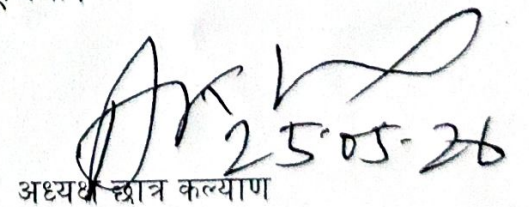 25.05.26
अध्यक्ष छात्र कल्याण